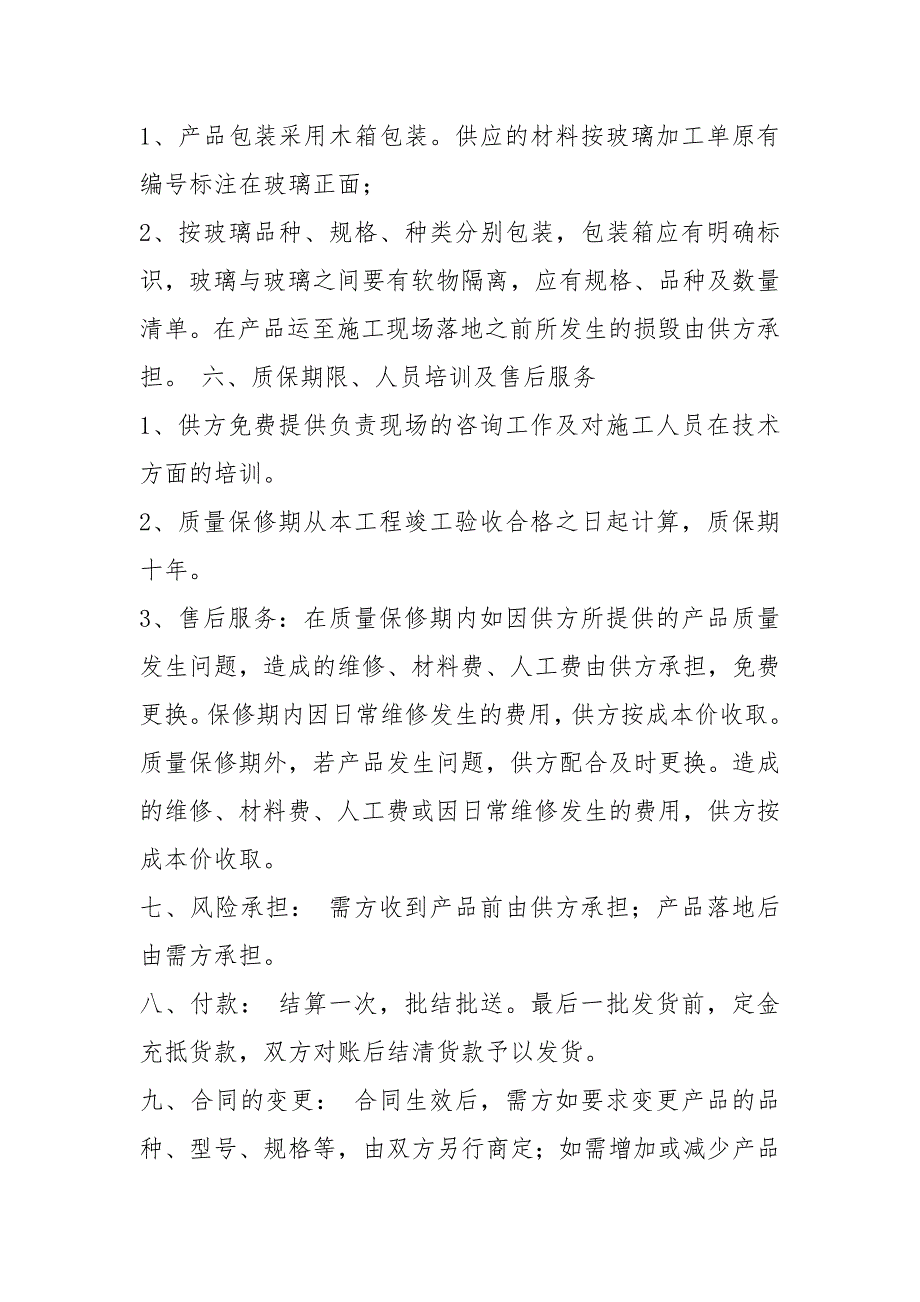 1、产品包装采用木箱包装。供应的材料按玻璃加工单原有
编号标注在玻璃正面；
2、按玻璃品种、规格、种类分别包装，包装箱应有明确标
识，玻璃与玻璃之间要有软物隔离，应有规格、品种及数量
清单。在产品运至施工现场落地之前所发生的损毁由供方承
担。 六、质保期限、人员培训及售后服务
1、供方免费提供负责现场的咨询工作及对施工人员在技术
方面的培训。
2、质量保修期从本工程竣工验收合格之日起计算，质保期
十年。
3、售后服务：在质量保修期内如因供方所提供的产品质量
发生问题，造成的维修、材料费、人工费由供方承担，免费
更换。保修期内因日常维修发生的费用，供方按成本价收取。
质量保修期外，若产品发生问题，供方配合及时更换。造成
的维修、材料费、人工费或因日常维修发生的费用，供方按
成本价收取。
七、风险承担： 需方收到产品前由供方承担；产品落地后
由需方承担。
八、付款： 结算一次，批结批送。最后一批发货前，定金
充抵货款，双方对账后结清货款予以发货。
九、合同的变更： 合同生效后，需方如要求变更产品的品
种、型号、规格等，由双方另行商定；如需增加或减少产品